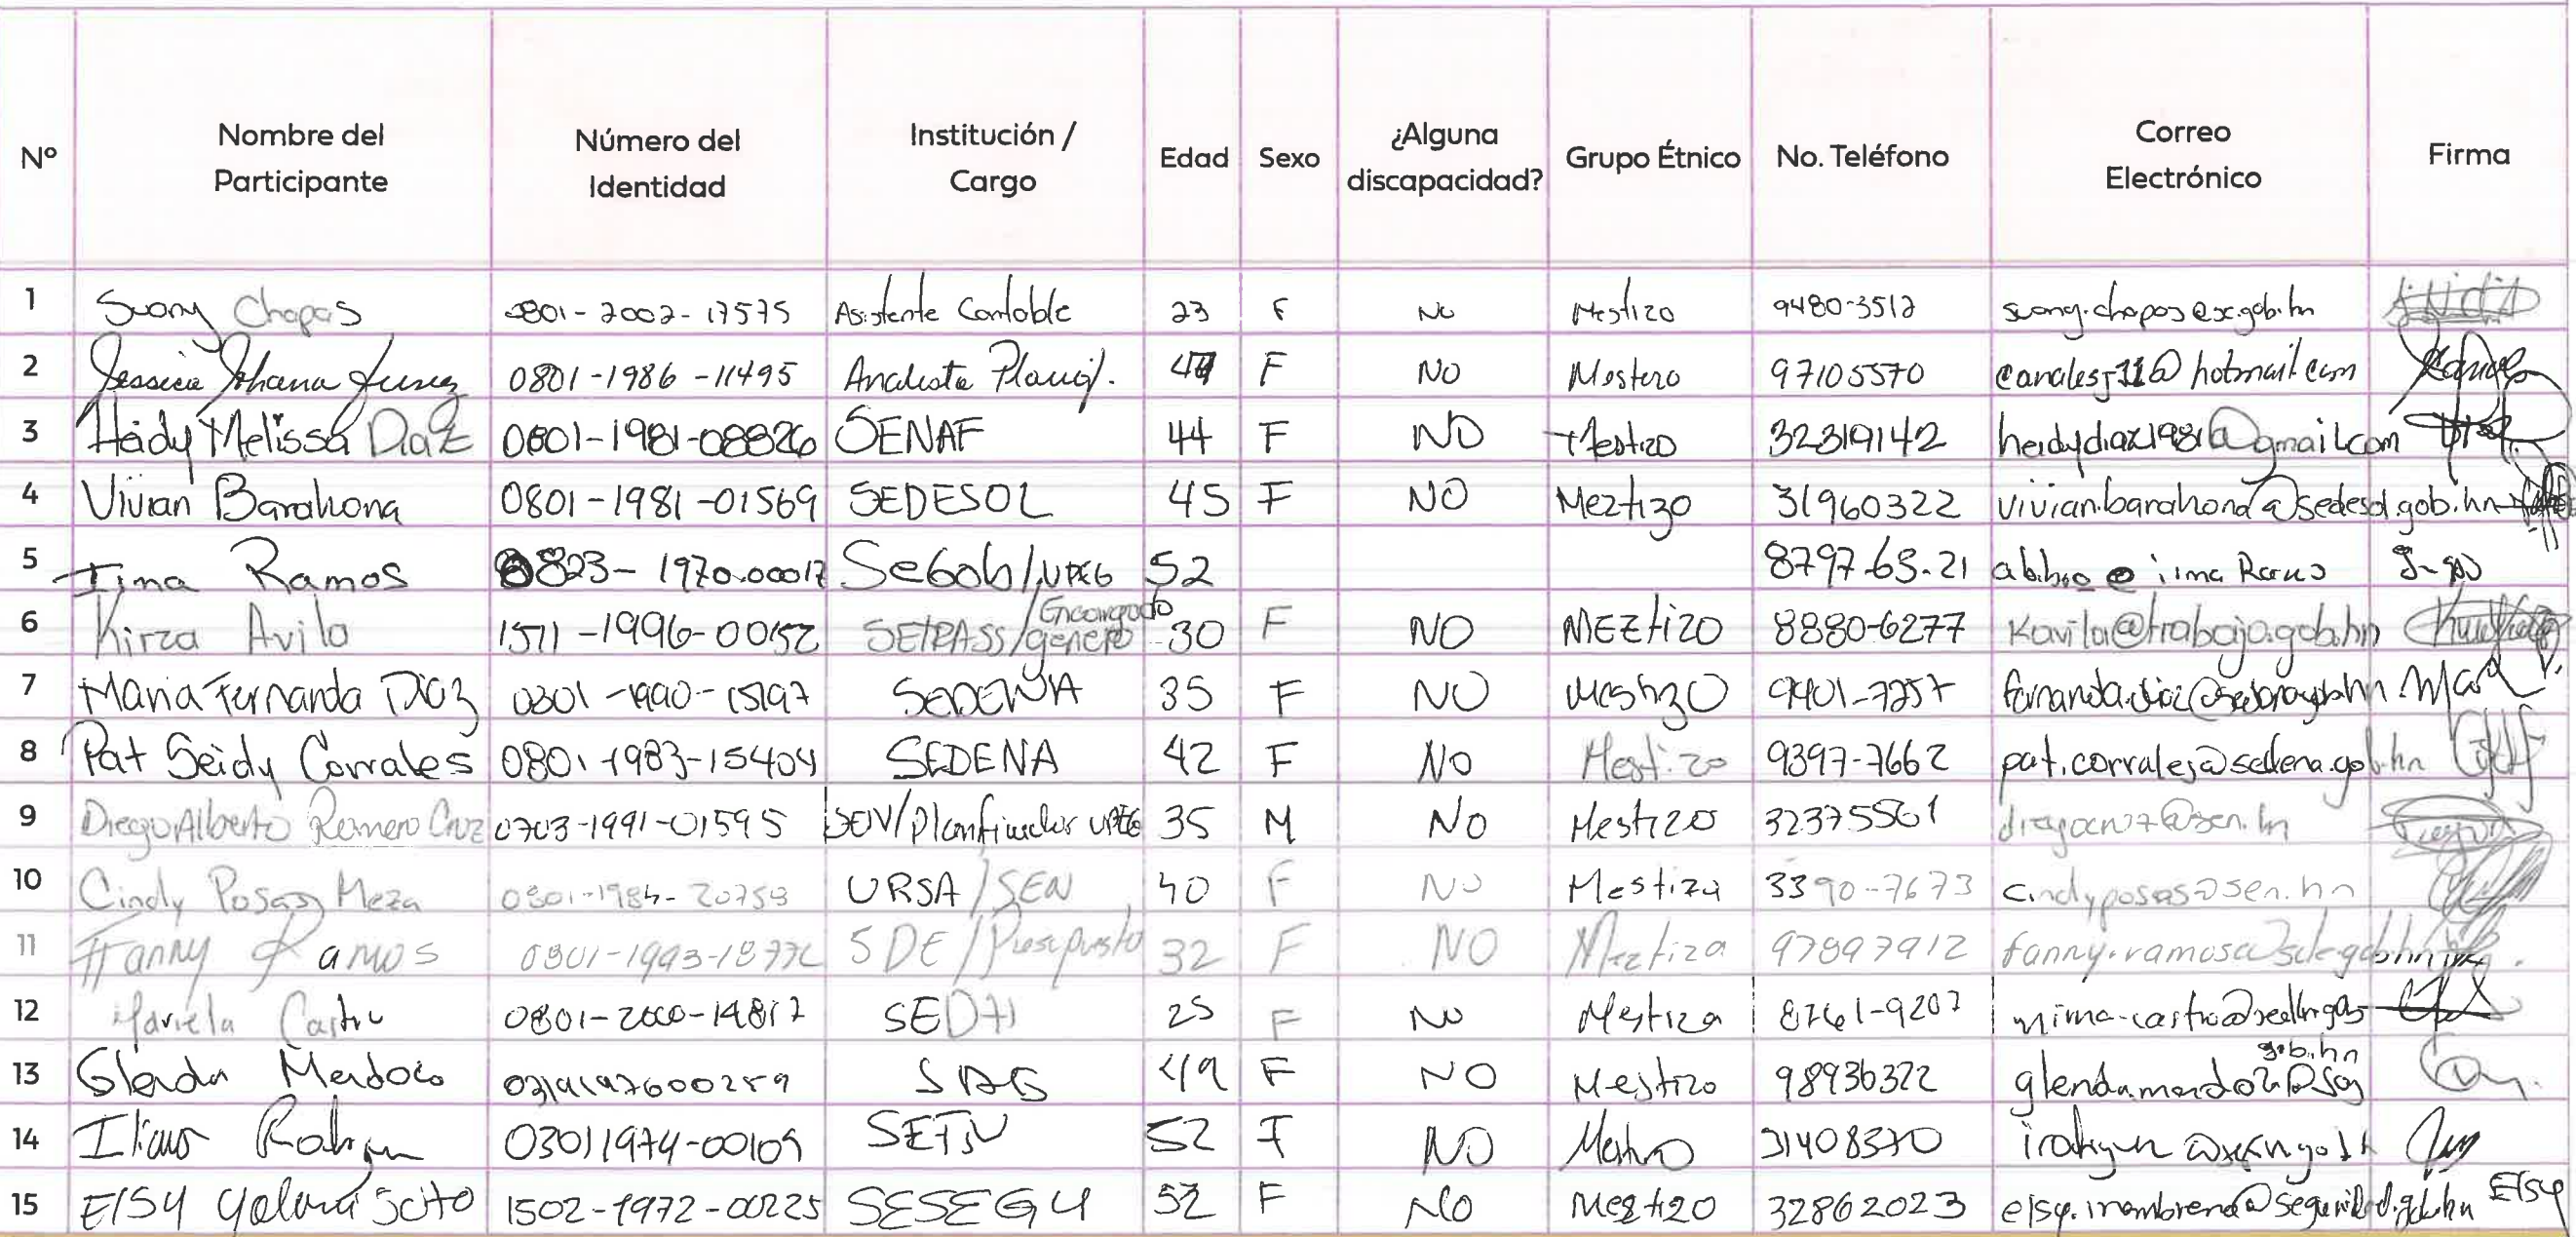 Nº Nombre del Participante Número del Identidad Institución / Cargo Edad Sexo ¿Alguna discapacidad? Grupo Étnico No. Teléfono Correo Electrónico Firma
1 Suany Chapas 0801-2002-17575 Asistente Contable 23 F No Mestizo 9480-3512
2 Jessica Johana Funez 0801-1986-11495 Analista Planif. F NO Mestizo 97105570 canalesj11@hotmail.com
3 Heidy Melissa Diaz 0801-1981-08826 SENAF 44 F NO Mestizo 32319142 heidydiaz1981@gmail.com
4 Vivian Barahona 0801-1981-01569 SEDESOL 45 F NO Meztizo 31960322 vivian.barahona@sedesol.gob.hn
5 Irma Ramos 0823-1970-00017 52 8797-65-21
6 Kirza Avila 1511-1996-00152 SETRASS/Encargado genero 30 F NO MEZtizo 8880-6277 Kavila@trabajo.gob.hn
7 Maria Fernanda Diaz 0801-1990-15197 SEDENA 35 F NO Mestizo 9401-7257
8 Pat Seidy Corrales 0801-1983-15404 SEDENA 42 F No Mestizo 9397-7662 pat.corrales@sedena.gob.hn
9 Diego Alberto Romero Cruz 0703-1991-01595 35 M No Mestizo 32375561
10 Cindy Posas Meza 0801-1984-20758 URSA/SEN 40 F No Mestiza 3390-7673 cindyposas@sen.hn
11 Fanny Ramos SDE/Presupuesto 32 F NO Meztiza 97897912 fanny.ramos@sde.gob.hn
12 Mariela Castro 0801-2000-14817 SEDH 25 F No Mestiza 8761-9207
13 Glenda Mendoza SAG 49 F NO Mestizo 98936322
14 03011974-00109 52 F NO 31408370
15 Elsy 1502-1972-00225 SESEGU 52 F No Meztizo 32862023 elsy.membreno@seguridad.gob.hn Elsy